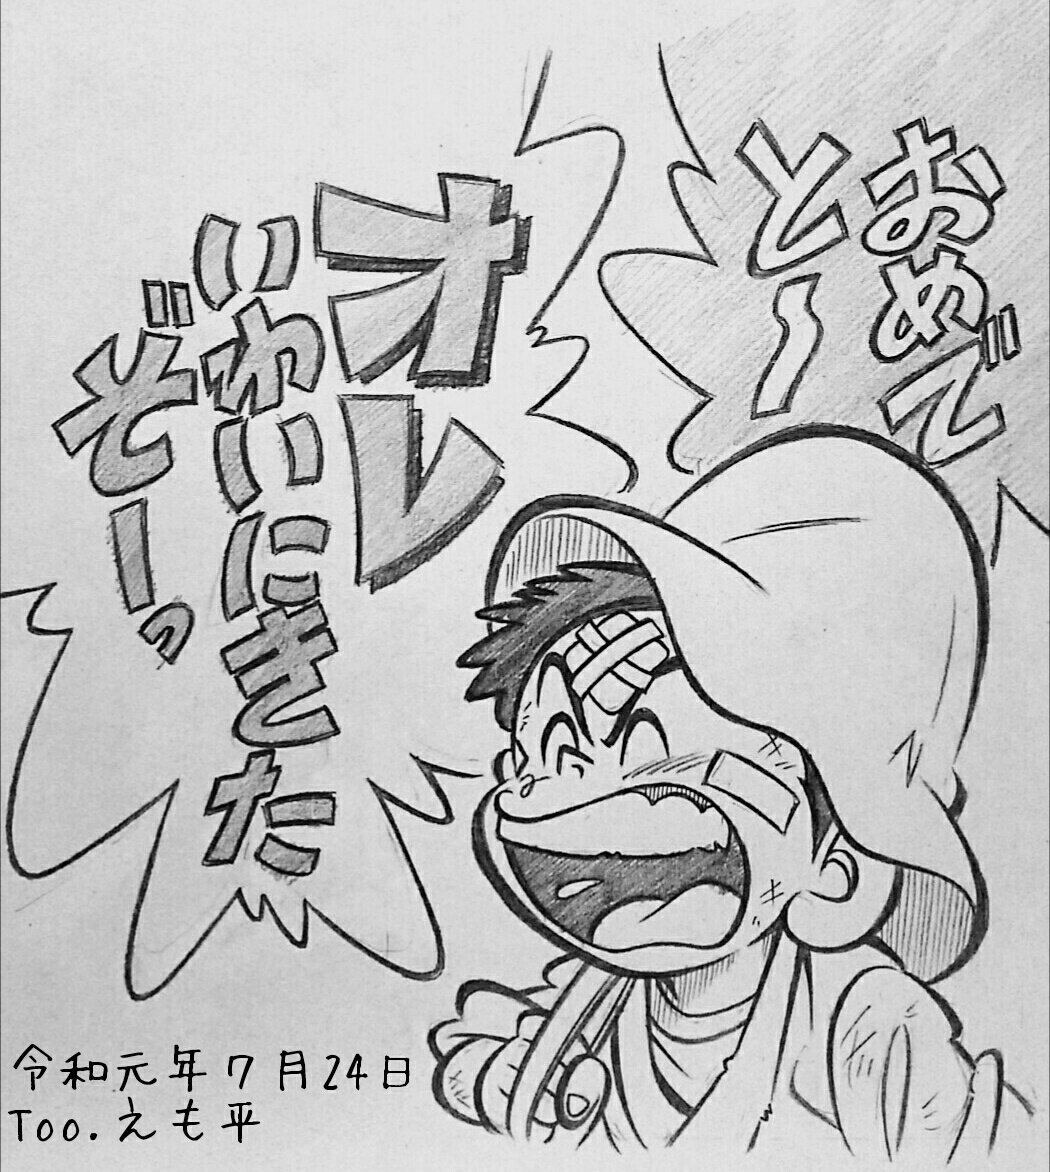 おめで
とー
オレ
いわいにきた
ぞーっ
令和元年7月24日
Too.えも平